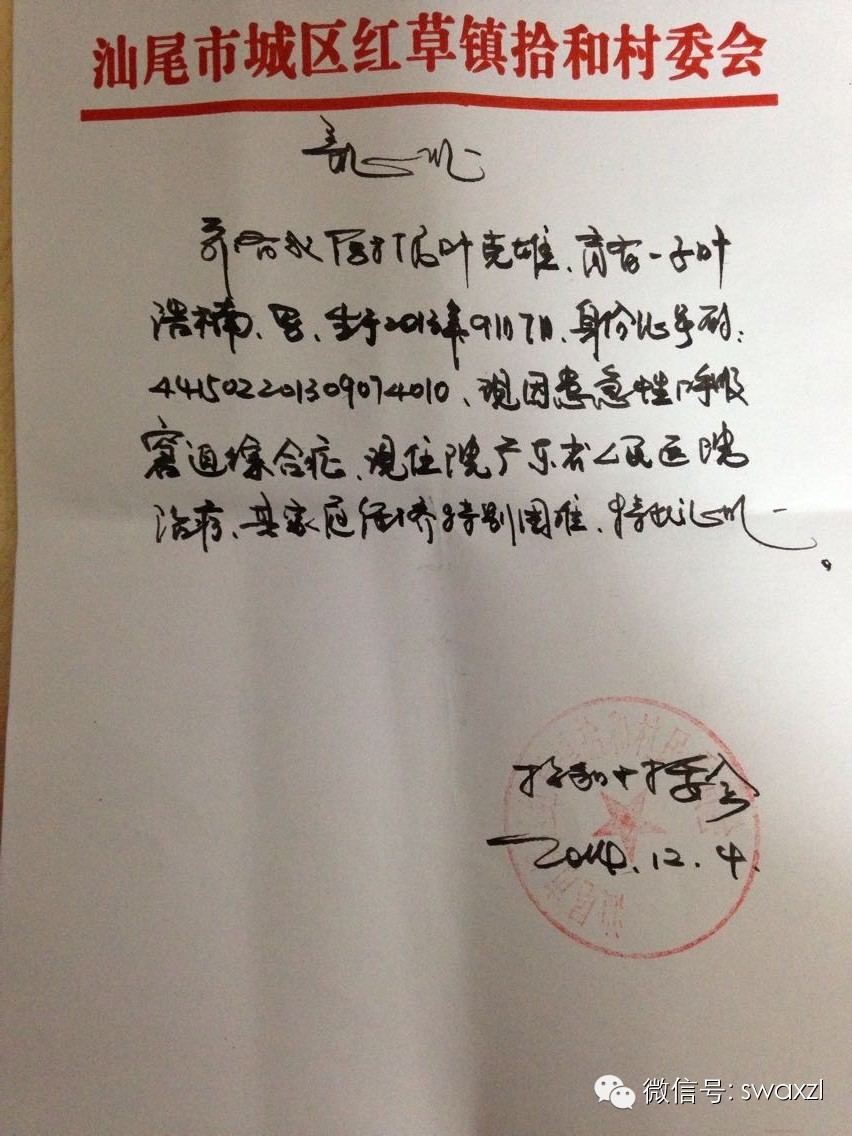 汕尾市城区红草镇拾和村委会
证明
兹有我 村 叶克雄、育有一子叶
浩楠、男、生于2013年9月7日、身份证号码:
441502201309074010、现因患急性呼吸
窘迫综合症、现住院广东省人民医院
治疗、其家庭经济特别困难、特此证明。
拾和村委会
2014.12.4.
微信号: swaxzl